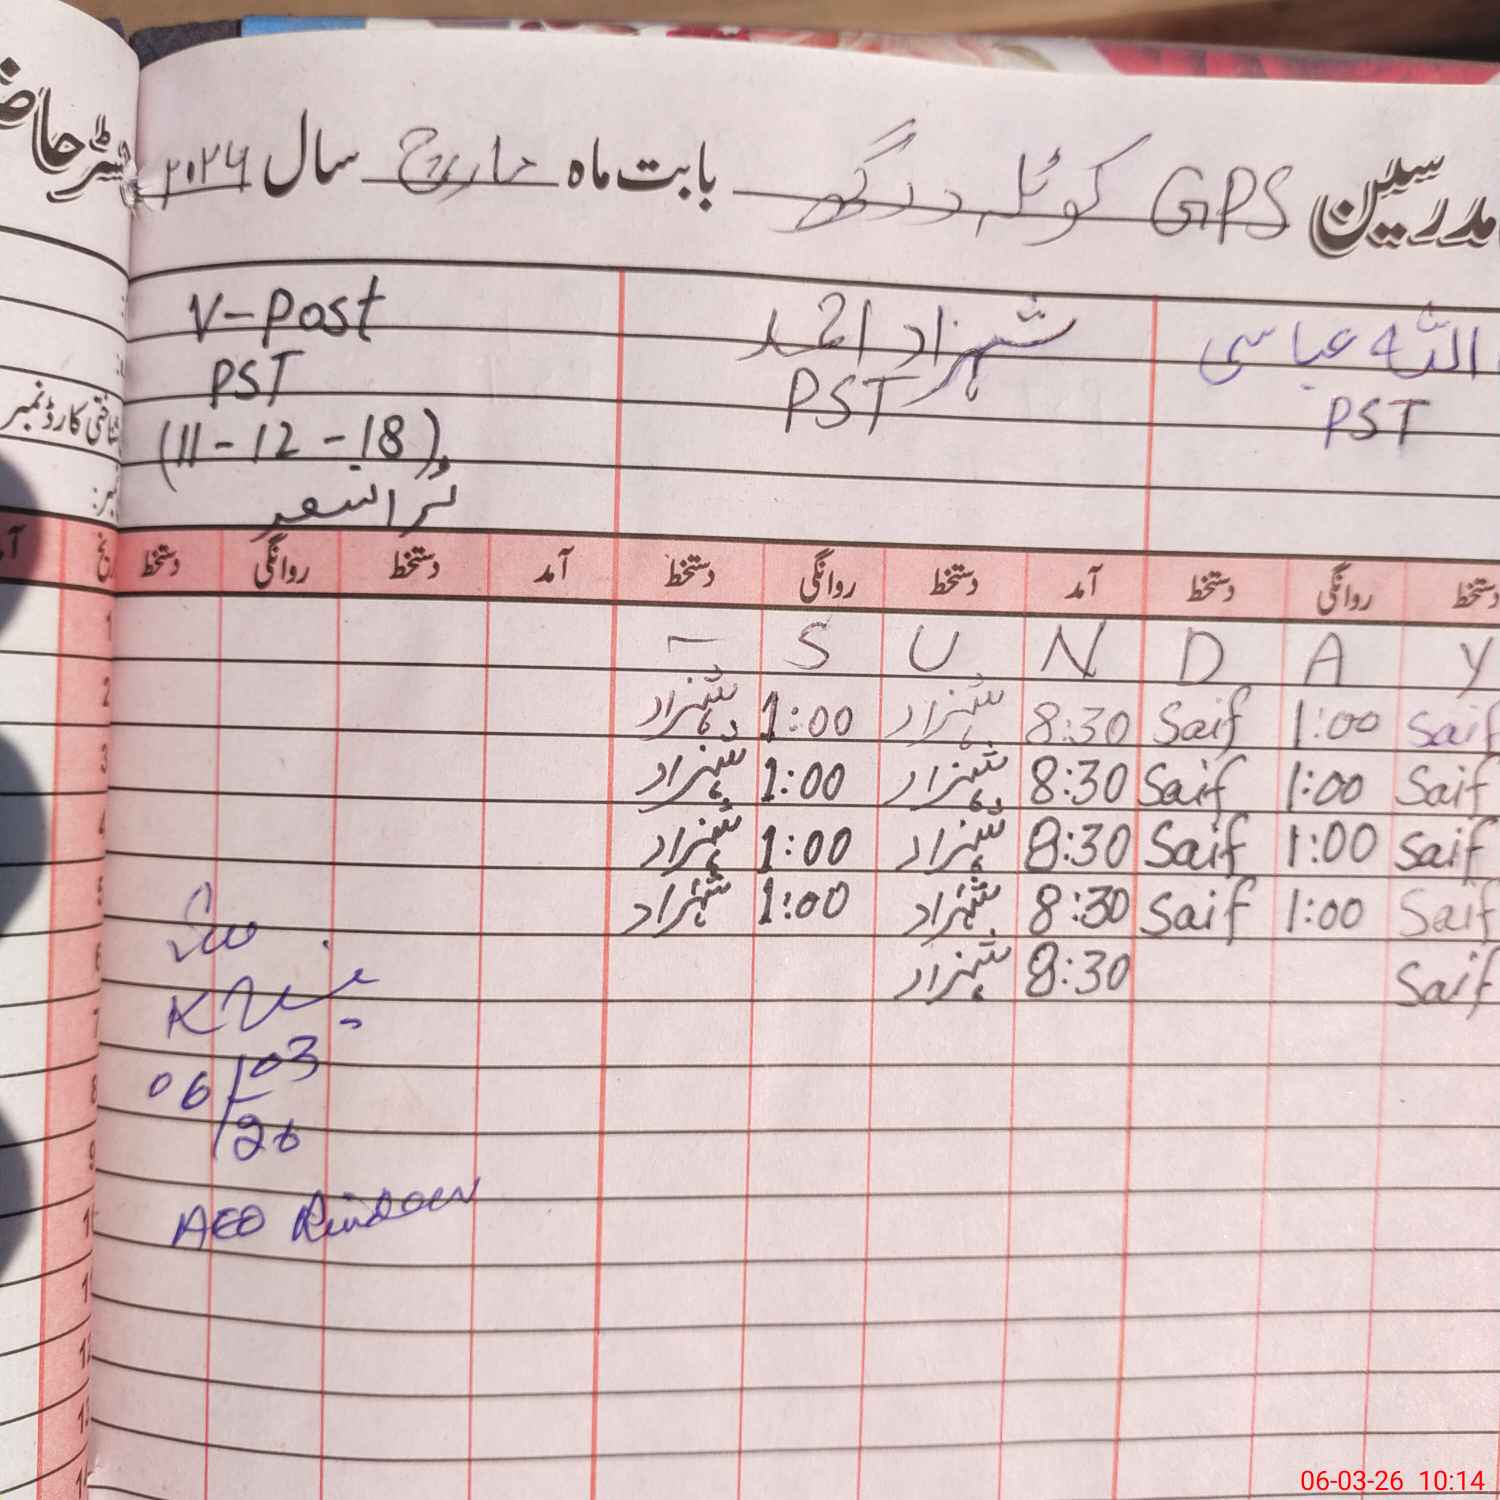 مدرسین GPS کوٹلہ درگھ بابت ماہ مارچ سال ۲۰۲۶
اللہ عباسی شہزاد احمد V-Post
PST PST PST
(11-12-18)
ٹرانسفر
شناختی کارڈ نمبر
دستخط روانگی دستخط آمد دستخط روانگی دستخط آمد دستخط روانگی دستخط
Y A D N U S – 1
Saif 1:00 Saif 8:30 شہزاد 1:00 شہزاد 2
Saif 1:00 Saif 8:30 شہزاد 1:00 شہزاد 3
Saif 1:00 Saif 8:30 شہزاد 1:00 شہزاد 4
Saif 1:00 Saif 8:30 شہزاد 1:00 شہزاد 5
Saif 8:30 شہزاد 6
7
8
9
06/03
26
AEO
06-03-26 10:14